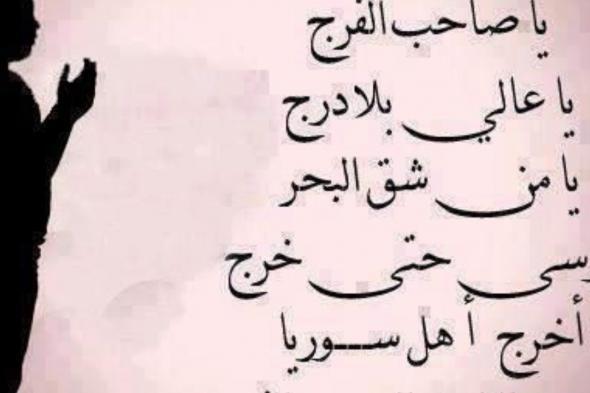 يا صاحب الفرج
يا عالي بلا درج
يا من شق البحر
حتى خرج
أخرج أهل سوريا